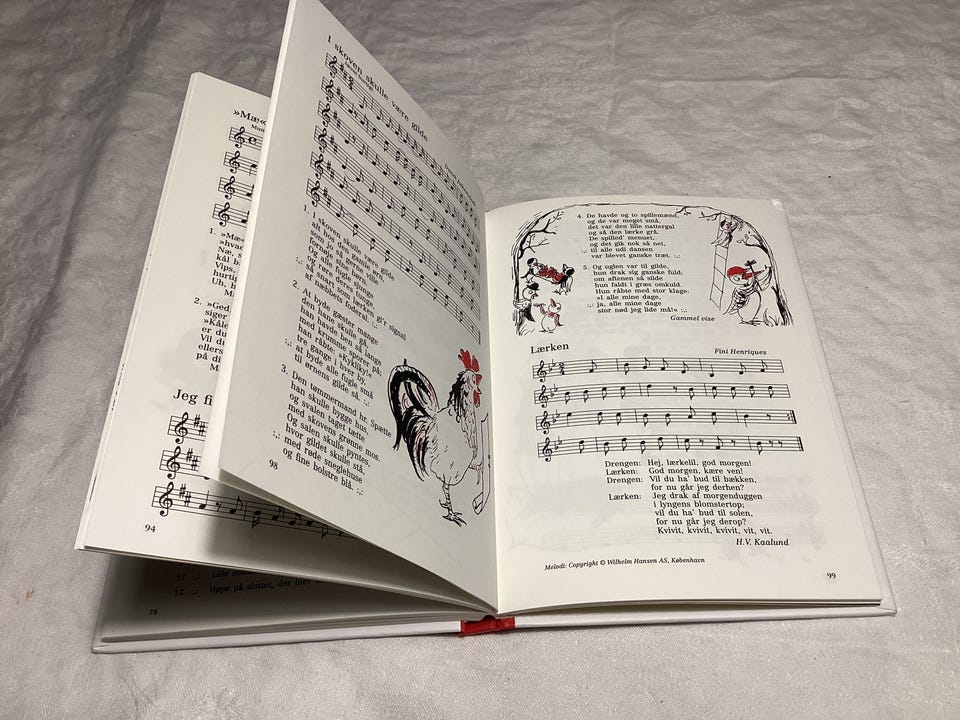 »Mæ«
Mun
1. »Mæ«
»hvad
Næ, s
kål b
Vips,
hurtig
Uh, h
M
2. »Ged,
siger
»Kåle
er du
Vil du
ellers
på di
M
Jeg fi
94
11 .. Lille
12. .:. Oppe på slottet, der blev
78
I skoven skulle være gilde
1. I skoven skulle være gilde
alt hos den gamle ørn,
fornøje sig og sine små,
og alle fugle sjunge
2. At byde gæster mange
den hane skulle gå,
han havde ben så lange
med krumme sporer på;
tre gange i hver by,
han råbte: »Kykliky!«
.:. at byde alle fugle små
til ørnens gilde så. .:.
3. Den tømmermand hr. Spætte
han skulle bygge hus,
og svalen taget tætte
med skovens grønne mos.
Og salen skulle pyntes,
hvor gildet skulle stå,
.:. med røde sneglehuse
og fine bolstre blå. .:.
98
4. De havde og to spillemænd,
og de var meget små,
det var den lille nattergal
og så den lærke grå.
De spilled' menuet,
og det gik nok så net,
.:. til alle udi dansen
var blevet ganske træt. .:.
5. Og uglen var til gilde,
hun drak sig ganske fuld;
om aftenen så silde
hun faldt i græs omkuld.
Hun råbte med stor klage:
»I alle mine dage,
.:. ja, alle mine dage
stor nød jeg lide må!« .:.
Gammel vise
Lærken
Fini Henriques
Drengen: Hej, lærkelil, god morgen!
Lærken: God morgen, kære ven!
Drengen: Vil du ha' bud til bækken,
for nu går jeg derhen?
Lærken: Jeg drak af morgenduggen
i lyngens blomstertop;
vil du ha' bud til solen,
for nu går jeg derop?
Kvivit, kvivit, kvivit, vit, vit.
H.V. Kaalund
Melodi: Copyright © Wilhelm Hansen AS, København
99